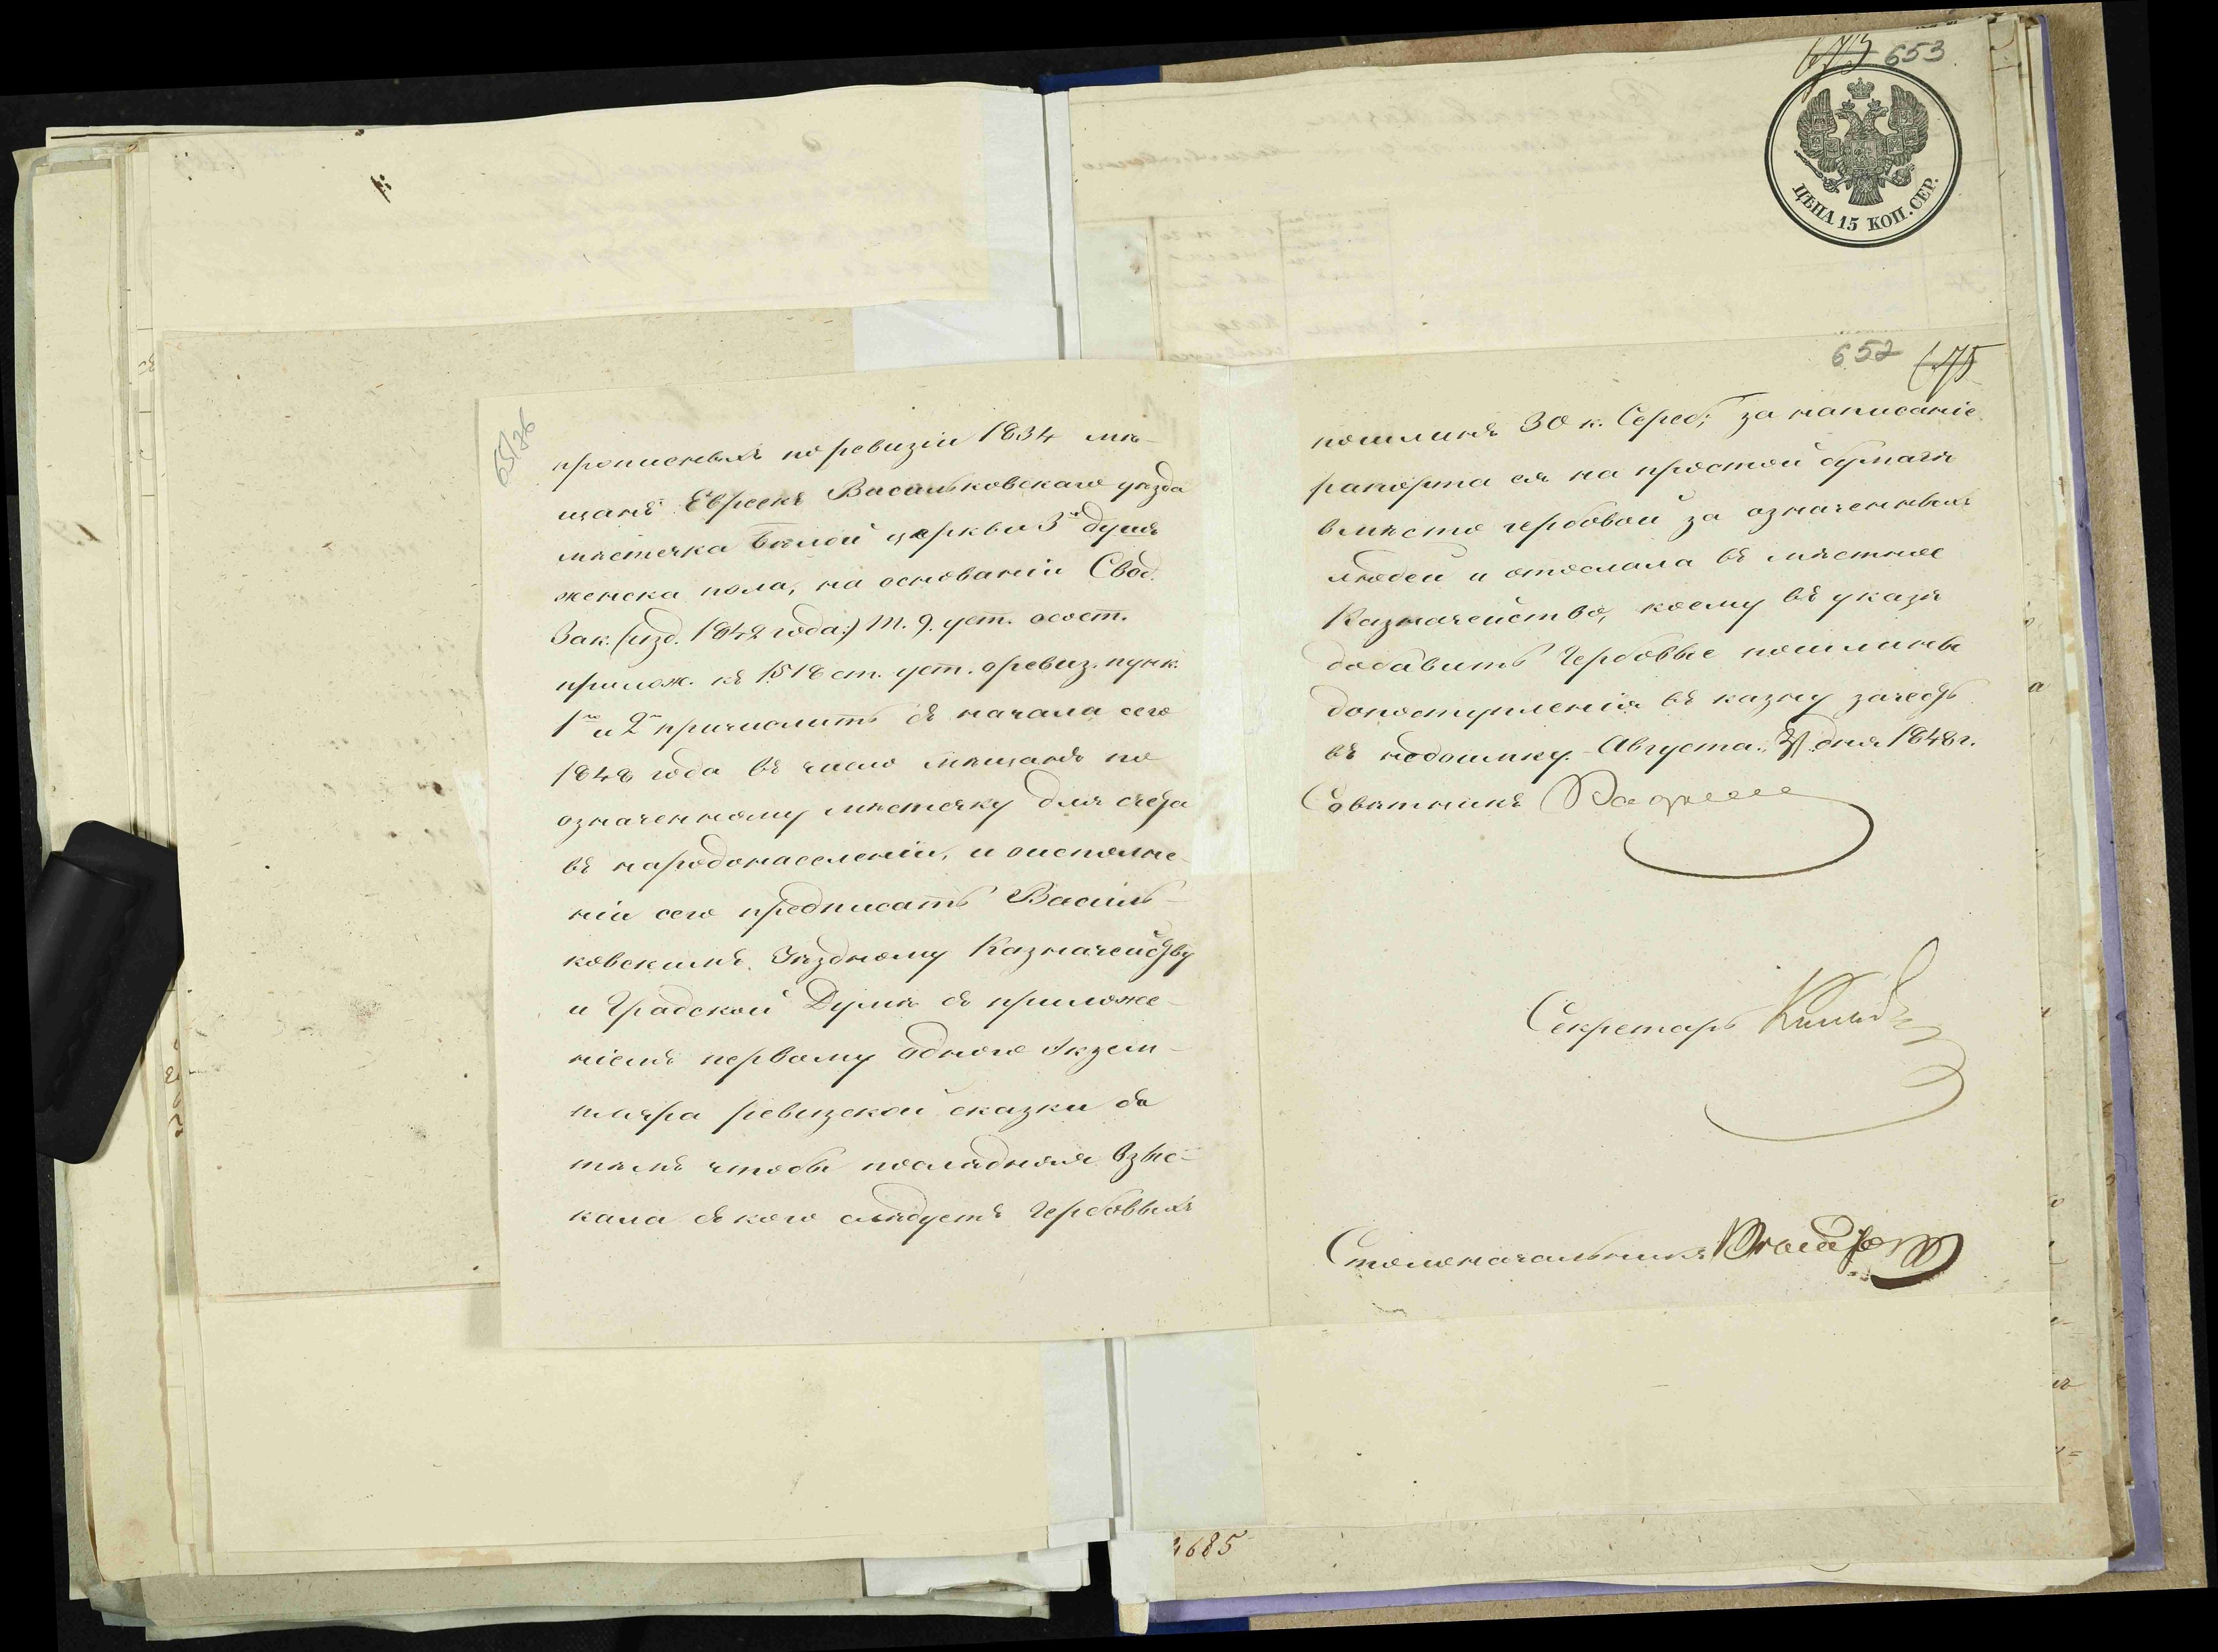 653
ЦѢНА 15 КОП. СЕР.
652
прописныхъ по ревизіи 1834 мѣ-
щанъ Евреевъ Васильковскаго уѣзда
мѣстечка Бѣлой церкви 3хъ душъ
женска пола, на основаніи Свод.
Зак. (изд. 1842 года:) Т. 9. уст. осост.
прилож. къ 1518 ст. уст. оревиз. пунк.
1го и 2го причислить съ начала сего
1848 года въ число мѣщанъ по
означенному мѣстечку для счета
въ народонаселеніи, и оисполне-
ніи сего предписать Василь-
ковскимъ Уѣздному Казначейству
и Градской Думѣ съ приложе-
ніемъ первому одного экзем-
пляра ревизской сказки съ
тѣмъ чтобы послѣдняя взыс-
кала съ кого слѣдуетъ гербовыхъ
пошлинъ 30 к. Сереб; за написаніе
рапорта ея на простой бумагѣ
вмѣсто гербовой за означенныхъ
людей и отослала въ мѣстное
Казначейство, коему въ указѣ
добавить Гербовые пошлины
допоступленія въ казну зачесть
въ недоимку. Августа. дня 1848 г.
Совѣтникъ
Секретарь
Столоначальникъ
1685